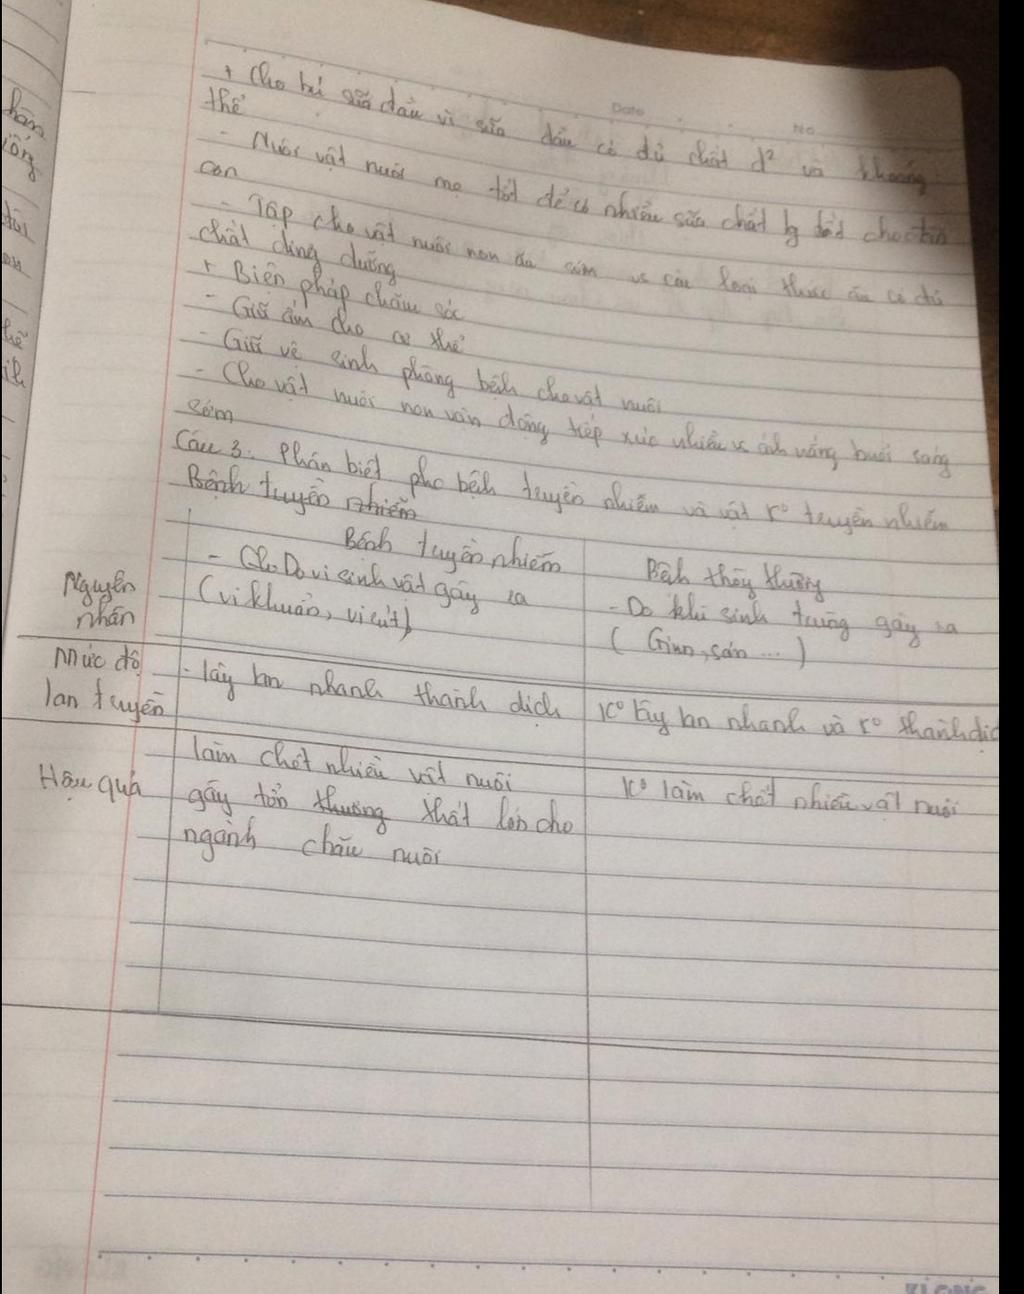 Date No
+ Cho bú sữa đầu vì sữa đầu có đủ chất d² và kháng
thể
- Nuôi vật nuôi mẹ tốt để có nhiều sữa chất lg tốt cho
con
- Tập cho vật nuôi non ăn sớm vs các loại thức ăn có đủ
chất ding dưỡng
+ Biện pháp chăm sóc
- Giữ ấm cho cơ thể
- Giữ vệ sinh phòng bệnh cho vật nuôi
- Cho vật nuôi non vận động tiếp xúc nhiều vs ánh nắng buổi sáng
sớm
Câu 3: Phân biệt bệnh truyền nhiễm và truyền nhiễm
Bệnh truyền nhiễm
Bệnh truyền nhiễm Bệnh thông thường
Nguyên - Do vi sinh vật gây ra - Do kí sinh trùng gây ra
nhân (vi khuẩn, vi rút) (Giun, sán ...)
Mức độ - lây lan nhanh thành dịch K° lây lan nhanh và k° thành dịc
lan truyền
Hậu quả làm chết nhiều vật nuôi K° làm chết nhiều vật nuôi
gây tổn thương thất lớn cho
ngành chăn nuôi
KLONG